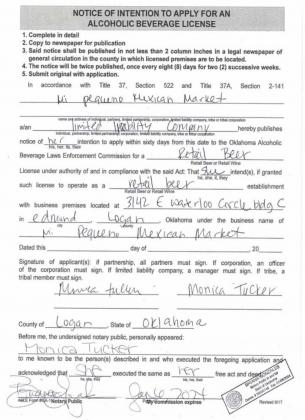 NOTICE OF INTENTION TO APPLY FOR AN
ALCOHOLIC BEVERAGE LICENSE
1. Complete in detail
2. Copy to newspaper for publication
3. Said notice shall be published in not less than 2 column inches in a legal newspaper of
general circulation in the county in which licensed premises are to be located.
4. The notice will be twice published, once every eight (8) days for two (2) successive weeks.
5. Submit original with application.
In accordance with Title 37, Section 522 and Title 37A, Section 2-141
Mi pequeno Mexican Market
a/an limited liability company hereby publishes
individual, partnership, limited partnership, corporation, limited liability company, tribe
notice of her intention to apply within sixty days from this date to the Oklahoma Alcoholic
his, her, its, their
Beverage Laws Enforcement Commission for a Retail Beer
Retail Beer or Retail Wine
License under authority of and in compliance with the said Act: That She intend(s), if granted
he, she, it, they
such license to operate as a retail beer establishment
Retail Beer or Retail Wine
with business premises located at 3142 E Waterloo Circle, bldg C
in edmund, Logan, Oklahoma under the business name of
city county
Mi Pequeno Mexican Market
Dated this day of , 20
Signature of applicant(s): if partnership, all partners must sign. If corporation, an officer
of the corporation must sign. If limited liability company, a manager must sign. If tribe, a
tribal member must sign.
Monica Tucker Monica Tucker
County of Logan, State of Oklahoma
Before me, the undersigned notary public, personally appeared:
Monica Tucker
to me known to be the person(s) described in and who executed the foregoing application and
acknowledged that she executed the same as her free act and deed.
he, she, they his, her, their
Notary Public My commission expires
Revised 9/17